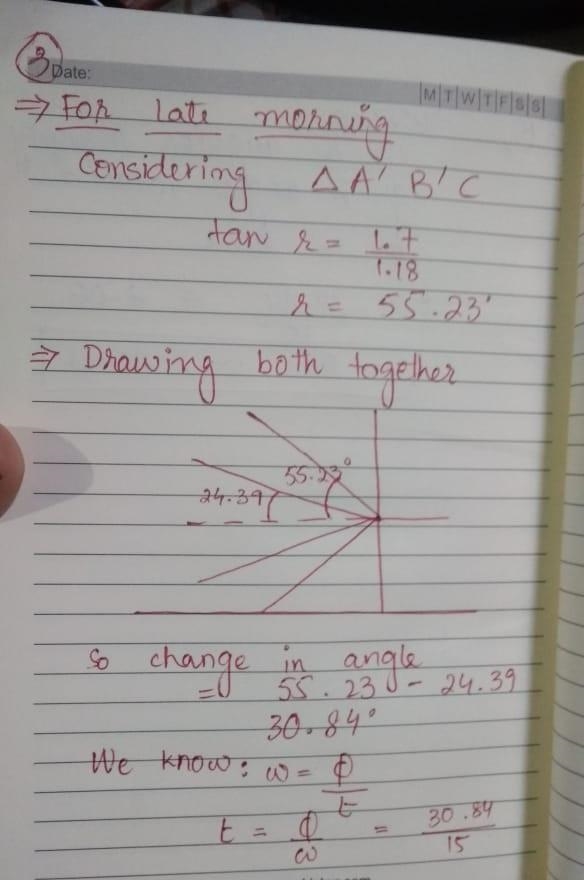 3
Date:
M T W T F S S
⇒ For late morning
Considering Δ A' B' C
tan r = 1.7
1.18
r = 55.23°
⇒ Drawing both together
55.23°
24.39
So change in angle
= 55.23 - 24.39
30.84°
We know: ω = ϕ
t
t = ϕ = 30.84
ω 15